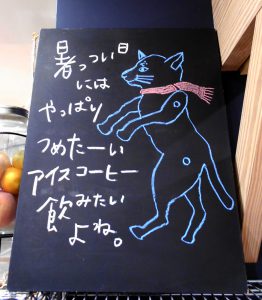 暑っつい日
には
やっぱり
つめたーい
アイスコーヒー
飲みたい
よね。